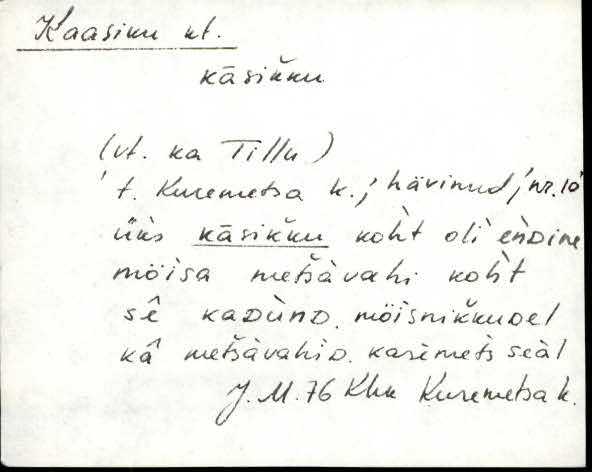 Kaasiku vt.
kāsikku
(vt. ka Tillu)
t. Kuremetsa k.; hävinud; nr. 10
üks kāsikku koht oli endine
mȫisa metsavahi koht
sê kaDunD. mȫisnikkuDel
kâ metsavahiD. karemets seal
J. M. 76 Khn Kuremetsa k.